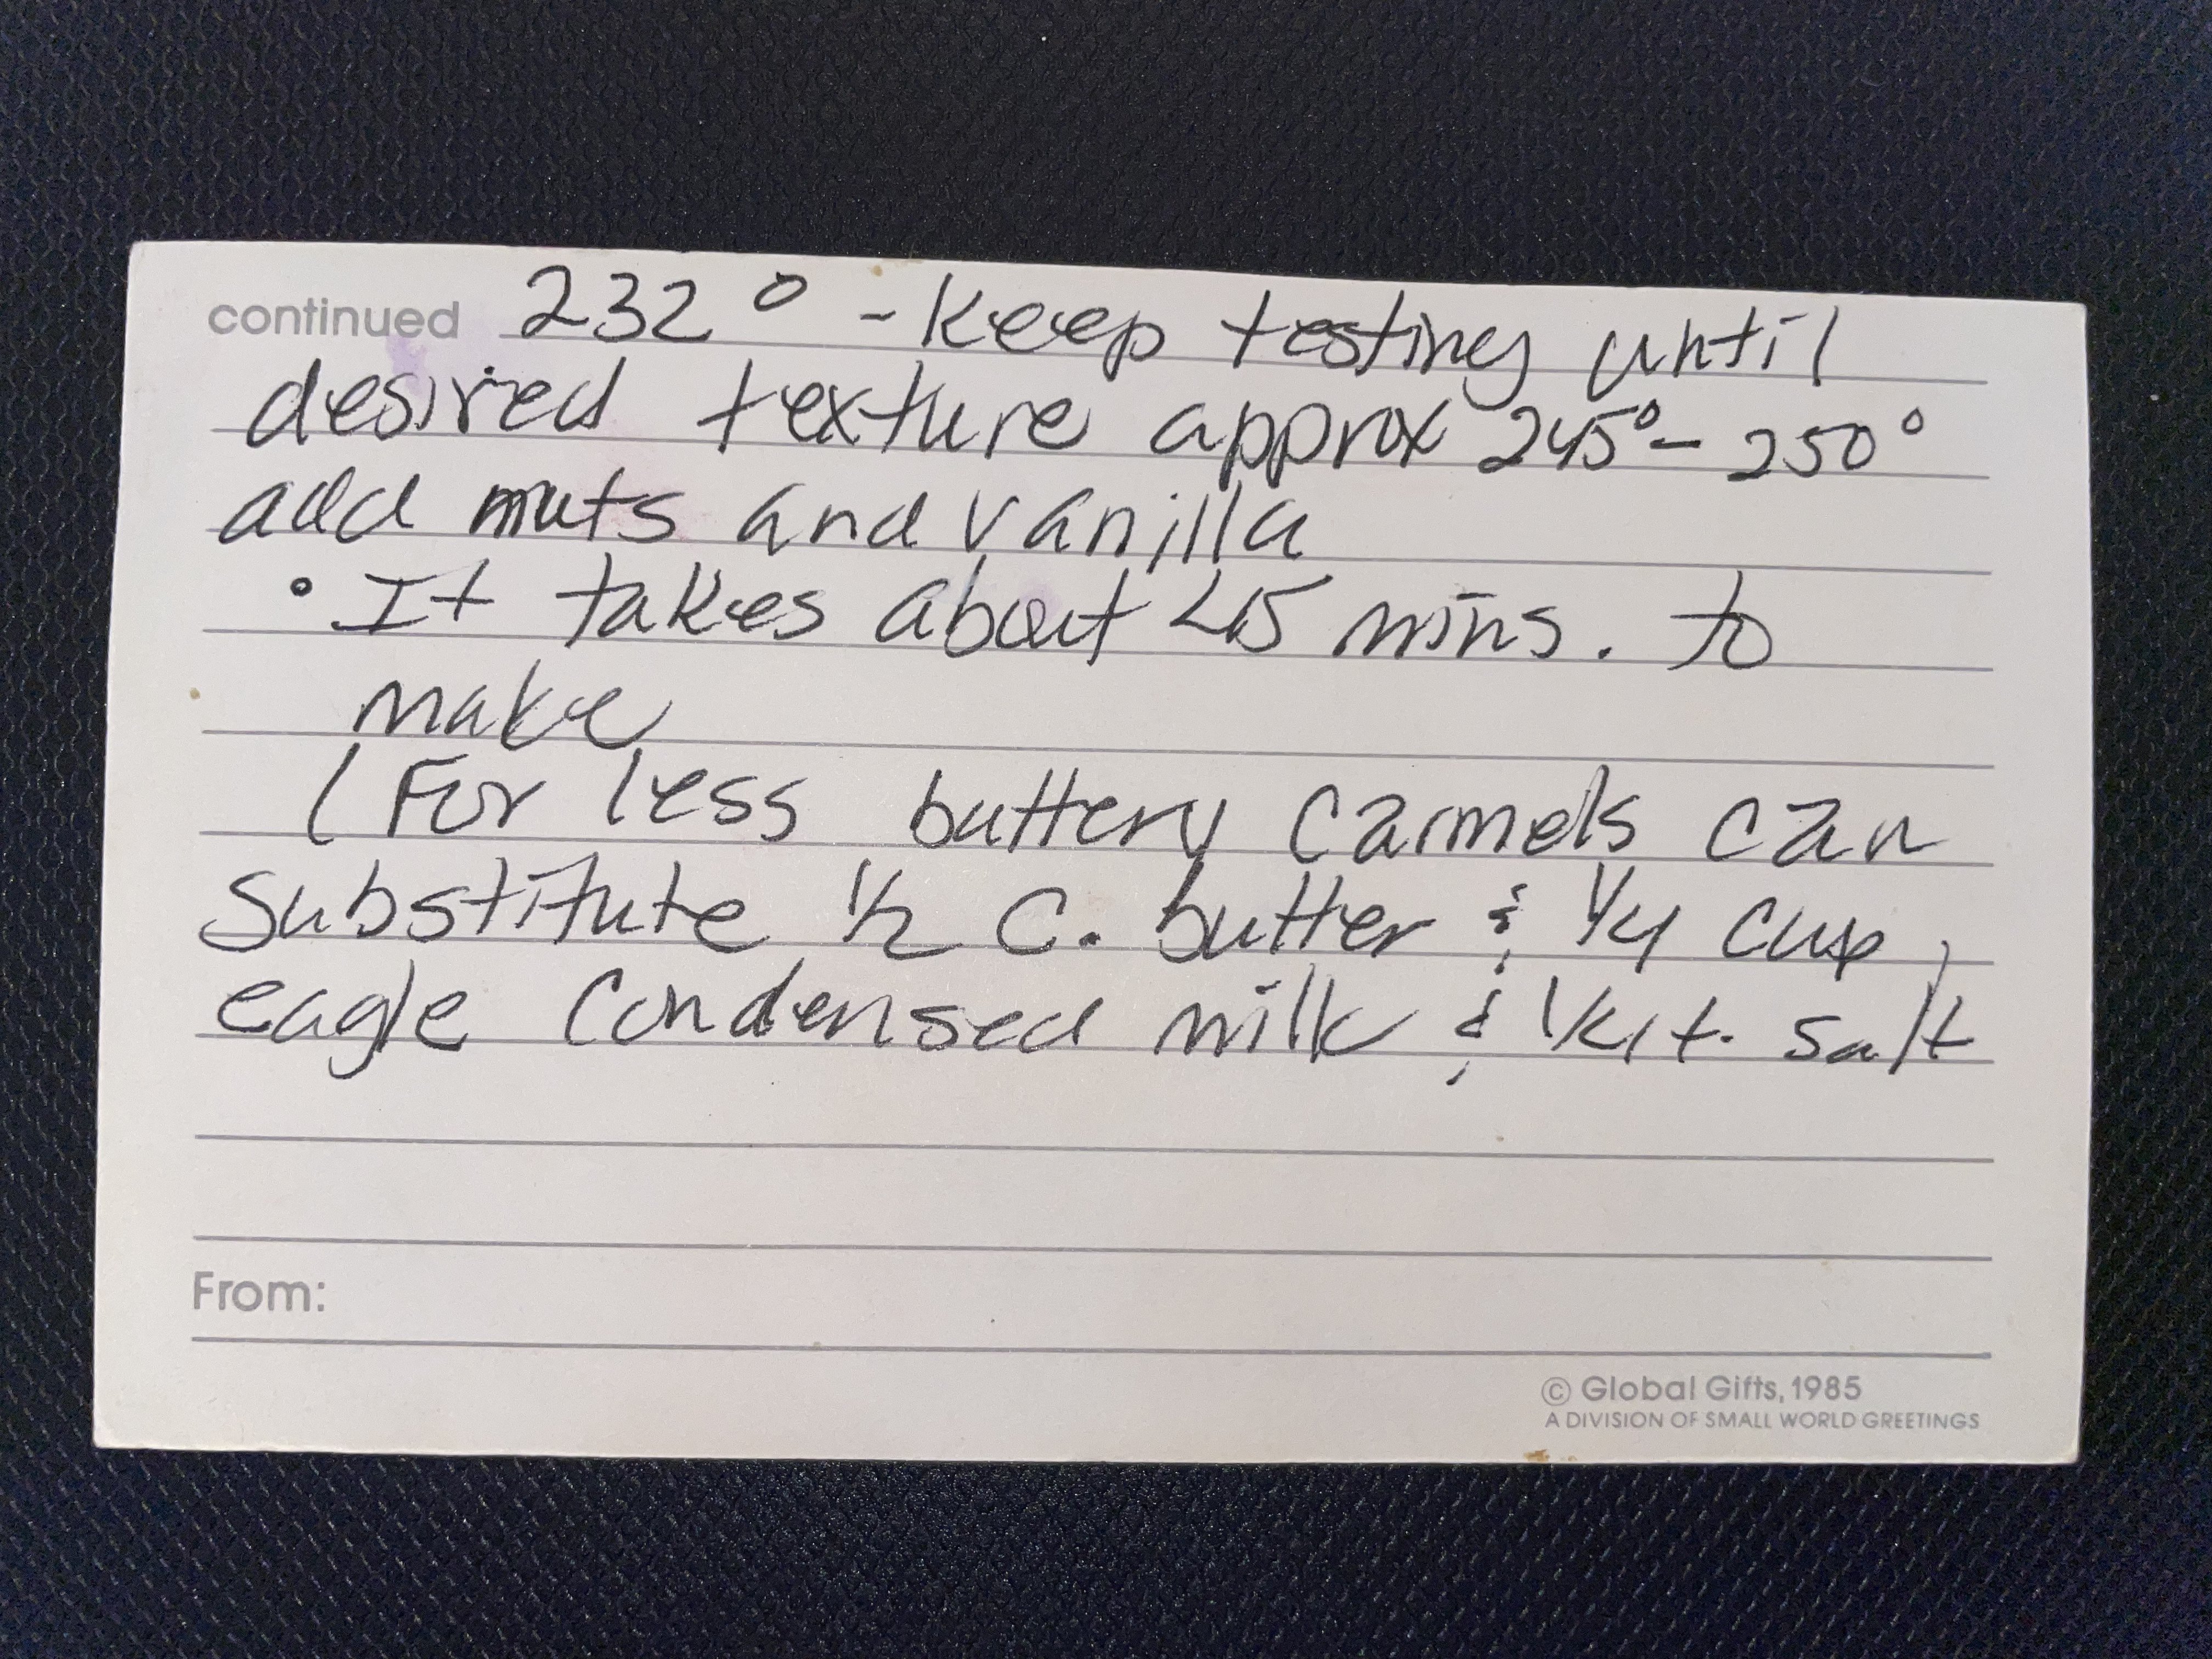 continued 232° - Keep testing until
desired texture approx 245° - 250°
add nuts and vanilla
• It takes about 45 mins. to
make
(For less buttery Carmels can
Substitute 1/2 C. butter & 1/4 cup
eagle Condensed milk & 1/4 t. salt)
From:
© Global Gifts, 1985
A DIVISION OF SMALL WORLD GREETINGS